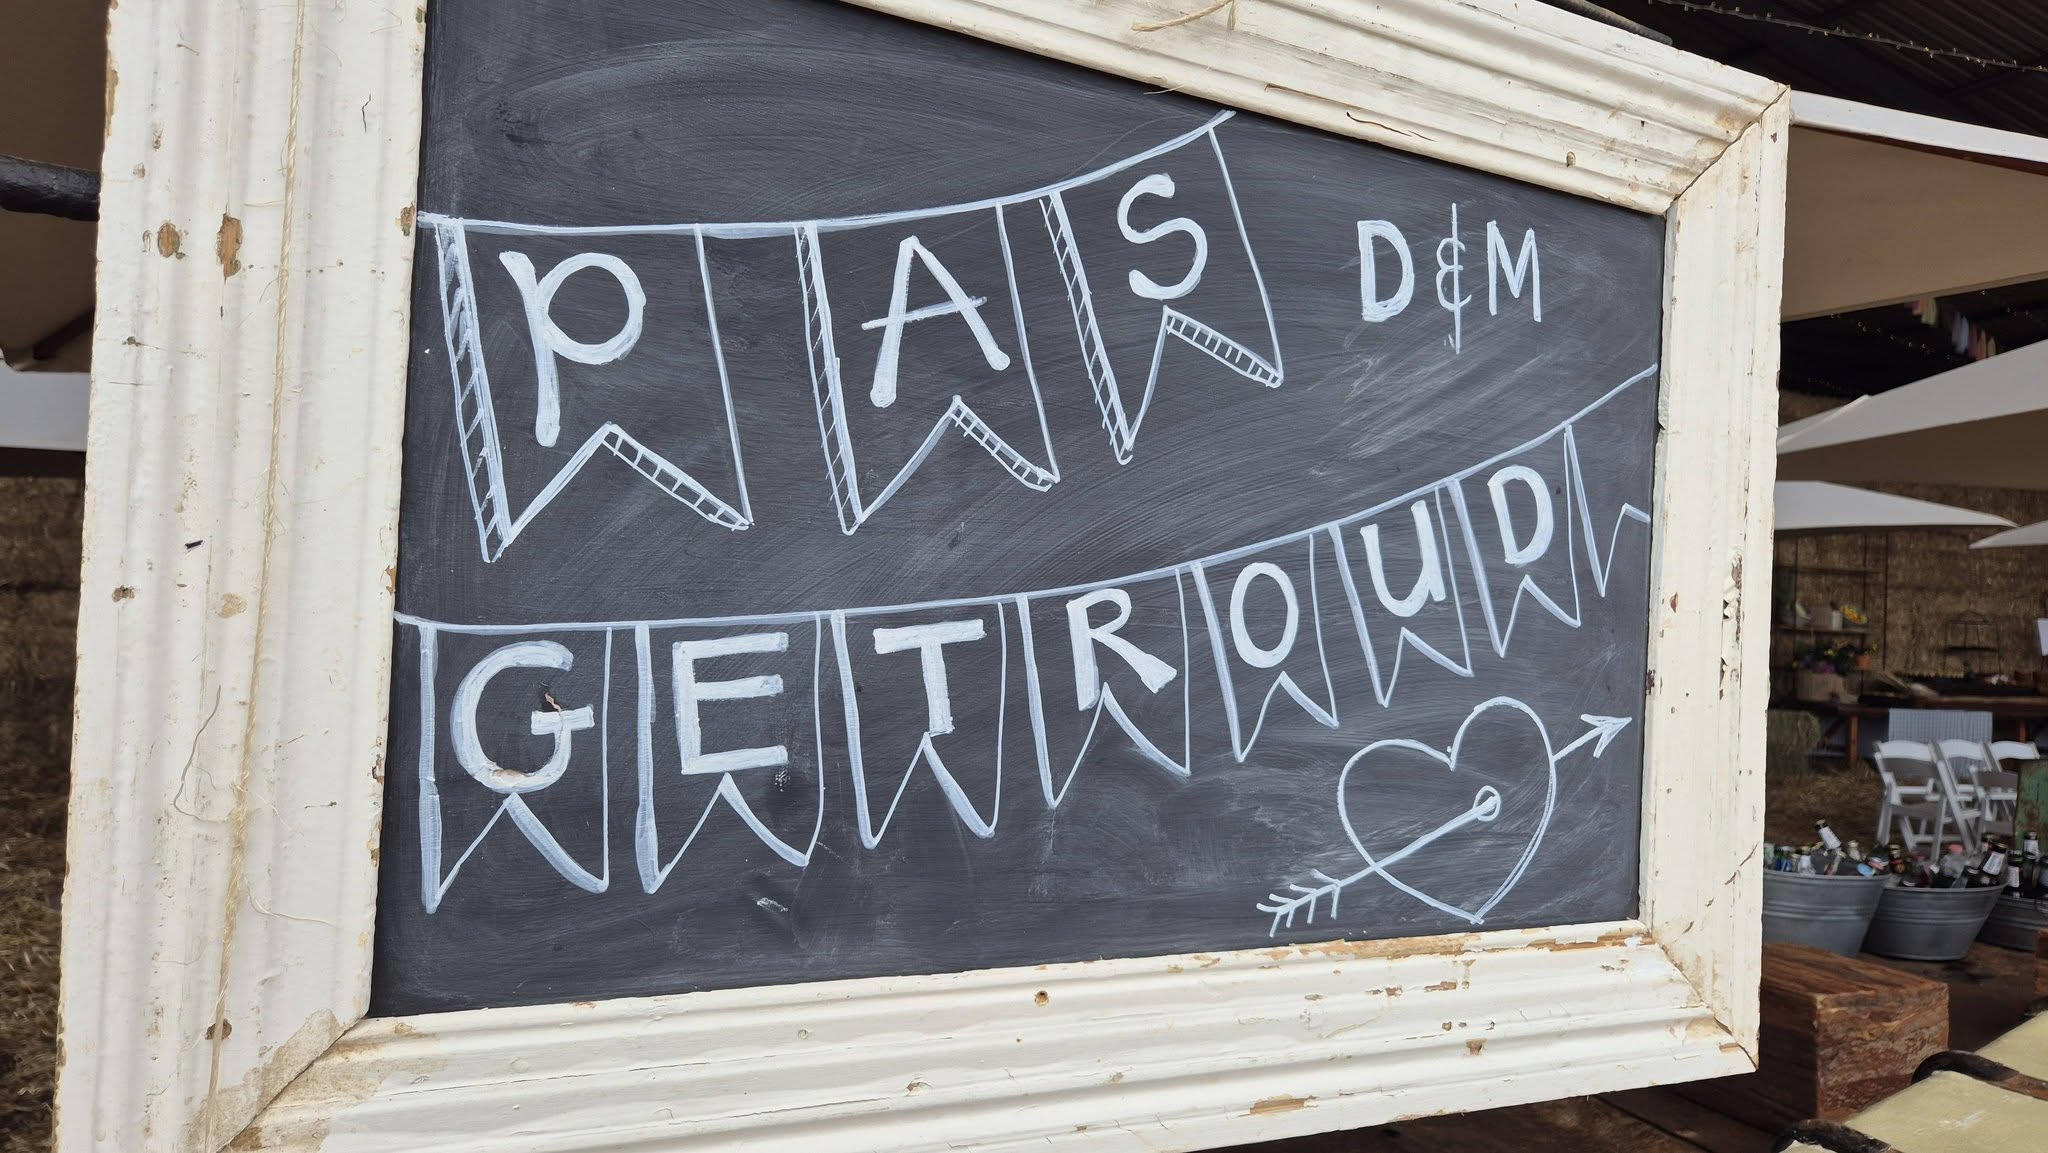 PAS
D & M
GETROUD